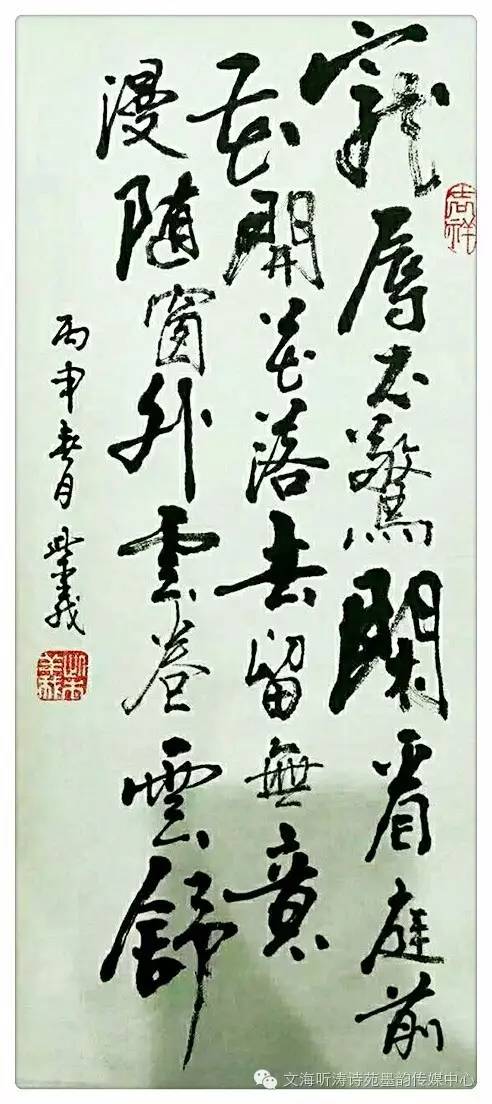 寵辱不驚閑看庭前
吉祥
花開花落去留無意
漫随窗外雲卷雲舒
丙申春月
文海听涛诗苑墨韵传媒中心